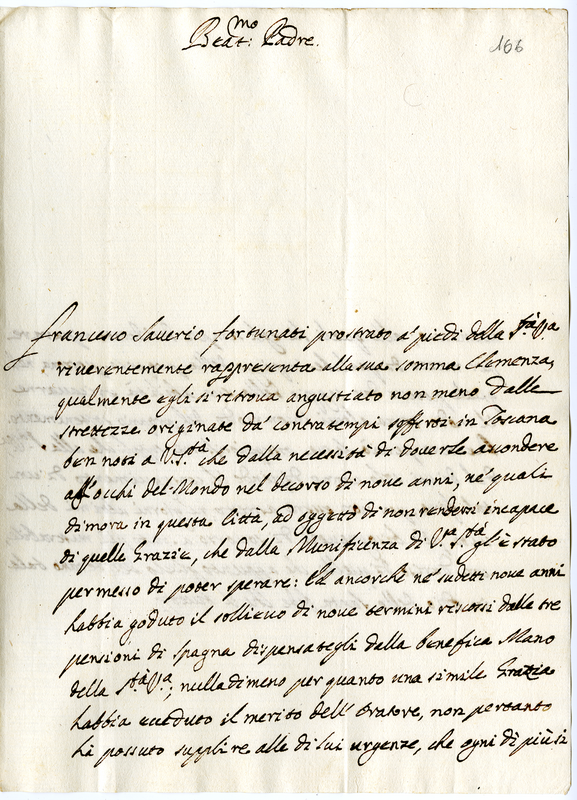 Beat:mo Padre.
166
Francesco Saverio Fortunati prostrato a' piedi della Stà Va
riverentemente rappresenta alla sua somma Clemenza,
qualmente egli si ritrova angustiato non meno dalle
strettezze originate da' contratempi sofferti in Toscana
ben noti a V. Stà che dalla necessità di doverle ascondere
agl'occhi del Mondo nel decorso di nove anni, ne' quali
dimora in questa Città, ad oggetto di non rendersi incapace
di quelle Grazie, che dalla Munificenza di Va Stà gl'è stato
permesso di poter sperare: Et ancorchè ne' sudetti nove anni
habbia goduto il sollievo di nove termini riscossi dalle tre
pensioni di Spagna dispensategli dalla benefica Mano
della Stà Va; nulladimeno per quanto una simile Grazia
habbia ecceduto il merito dell'Oratore, non pertanto
hà possuto supplire alle di lui urgenze, che ogni dì più si